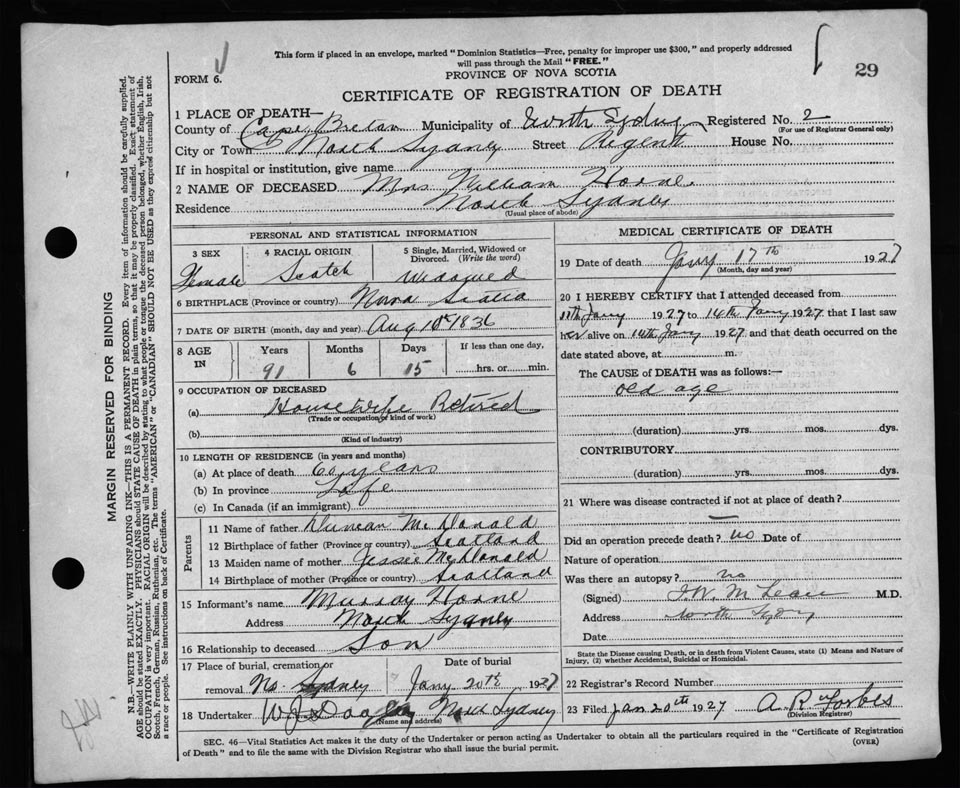 This form if placed in an envelope, marked "Dominion Statistics—Free, penalty for improper use $300," and properly addressed
will pass through the Mail "FREE."
FORM 6.
29
PROVINCE OF NOVA SCOTIA
CERTIFICATE OF REGISTRATION OF DEATH
1 PLACE OF DEATH—
County of Cape Breton Municipality of North Sydney Registered No. 2
(For use of Registrar General only)
City or Town North Sydney Street Regent House No.
If in hospital or institution, give name
2 NAME OF DECEASED Mrs William Horne.
Residence North Sydney
(Usual place of abode)
PERSONAL AND STATISTICAL INFORMATION
3 SEX 4 RACIAL ORIGIN 5 Single, Married, Widowed or
Divorced. (Write the word)
Female Scotch Widowed
6 BIRTHPLACE (Province or country) Nova Scotia
7 DATE OF BIRTH (month, day and year) Aug 10th 1836
8 AGE IN Years Months Days If less than one day,
91 6 15 hrs. or min.
9 OCCUPATION OF DECEASED
(a) Housewife Retired
(Trade or occupation or kind of work)
(b)
(Kind of industry)
10 LENGTH OF RESIDENCE (in years and months)
(a) At place of death 60 years
(b) In province Life
(c) In Canada (if an immigrant)
Parents
11 Name of father Duncan McDonald
12 Birthplace of father (Province or country) Scotland
13 Maiden name of mother Jessie McDonald
14 Birthplace of mother (Province or country) Scotland
15 Informant's name Murray Horne
Address North Sydney
16 Relationship to deceased Son
17 Place of burial, cremation or Date of burial
removal No. Sydney Jany 20th 1927
18 Undertaker North Sydney
(Name and address)
MEDICAL CERTIFICATE OF DEATH
19 Date of death Jany 17th 1927
(Month, day and year)
20 I HEREBY CERTIFY that I attended deceased from
11th Jany 1927 to 14th Jany 1927 that I last saw
her alive on 14th Jany 1927 and that death occurred on the
date stated above, at m.
The CAUSE of DEATH was as follows:—
old age
(duration) yrs. mos. dys.
CONTRIBUTORY
(duration) yrs. mos. dys.
21 Where was disease contracted if not at place of death?
—
Did an operation precede death? no Date of
Nature of operation
Was there an autopsy? no
(Signed) McLean M.D.
Address North Sydney
Date
State the Disease causing Death, or in death from Violent Causes, state (1) Means and Nature of
Injury, (2) whether Accidental, Suicidal or Homicidal.
22 Registrar's Record Number
23 Filed Jan 20th 1927 A. R. Forbes
(Division Registrar)
SEC. 46—Vital Statistics Act makes it the duty of the Undertaker or person acting as Undertaker to obtain all the particulars required in the "Certificate of Registration
of Death" and to file the same with the Division Registrar who shall issue the burial permit.
(OVER)
MARGIN RESERVED FOR BINDING
N.B.—WRITE PLAINLY WITH UNFADING INK—THIS IS A PERMANENT RECORD. Every item of information should be carefully supplied.
AGE should be stated EXACTLY. PHYSICIANS should STATE CAUSE OF DEATH in plain terms, so that it may be properly classified. Exact statement of
OCCUPATION is very important. RACIAL ORIGIN will be described by stating to what people or tongue the deceased person belonged, whether English, Irish,
Scotch, French, German, Russian, Ruthenian, etc. The terms "AMERICAN" or "CANADIAN" SHOULD NOT BE USED as they express citizenship but not
a race or people. See instructions on back of Certificate.